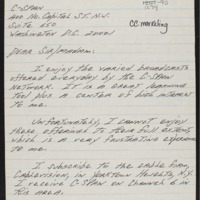 C-SPAN
400 No. Capitol St. N.W.
Suite 650
Washington D.C. 20001
CC marketing
Dear Sir/Madam:
I enjoy the varied broadcasts
offered everyday by the C-SPAN
Network. It is a great learning
tool plus a center of interest
to me.
Unfortunately, I cannot enjoy
these offerings to their full extent,
which is a very frustrating experience
to me.
I subscribe to the cable firm,
Cablevision, in Yorktown Heights, N.Y.
I receive C-SPAN on channel 6 in
this area.